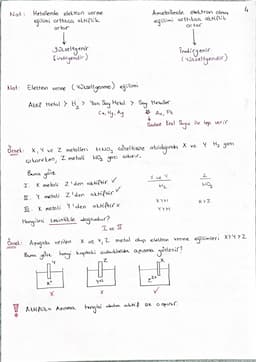 4
Not: Metallerde elektron verme
eğilimi arttıkça aktiflik
artar
↓
Yükseltgenir
(indirgendir)
Ametallerde elektron alma
eğilimi arttıkça aktiflik
artar
↓
İndirgenir
(Yükseltgendir)
Not: Elektron verme (Yükseltgenme) eğilimi
Aktif Metal > H2 > Yarı Soy Metal > Soy Metaller
Cu, Hg, Ag
Au, Pt
Sadece Kral Suyu ile tep verir
Örnek: X, Y ve Z metalleri
X ve Y H2 gazı
çıkarırken, Z metali NO2 gazı çıkarır.
Buna göre
I. X metali Z'den aktiftir ✓
II. Y metali Z'den aktiftir ✓
III. X metali Y'den aktiftir x
X ve Y
H2
Z
NO2
X>H
Y>H
Hangileri kesinlikle doğrudur?
I ve II
Örnek: Aşağıda verilen X, Y, Z metal olup elektron verme eğilimleri X>Y>Z
Buna göre hangi kaptaki aşınma gözlenir?
Y
Z
X
X+
Z2+
x
x
✓
Aktiflik = Aşınma